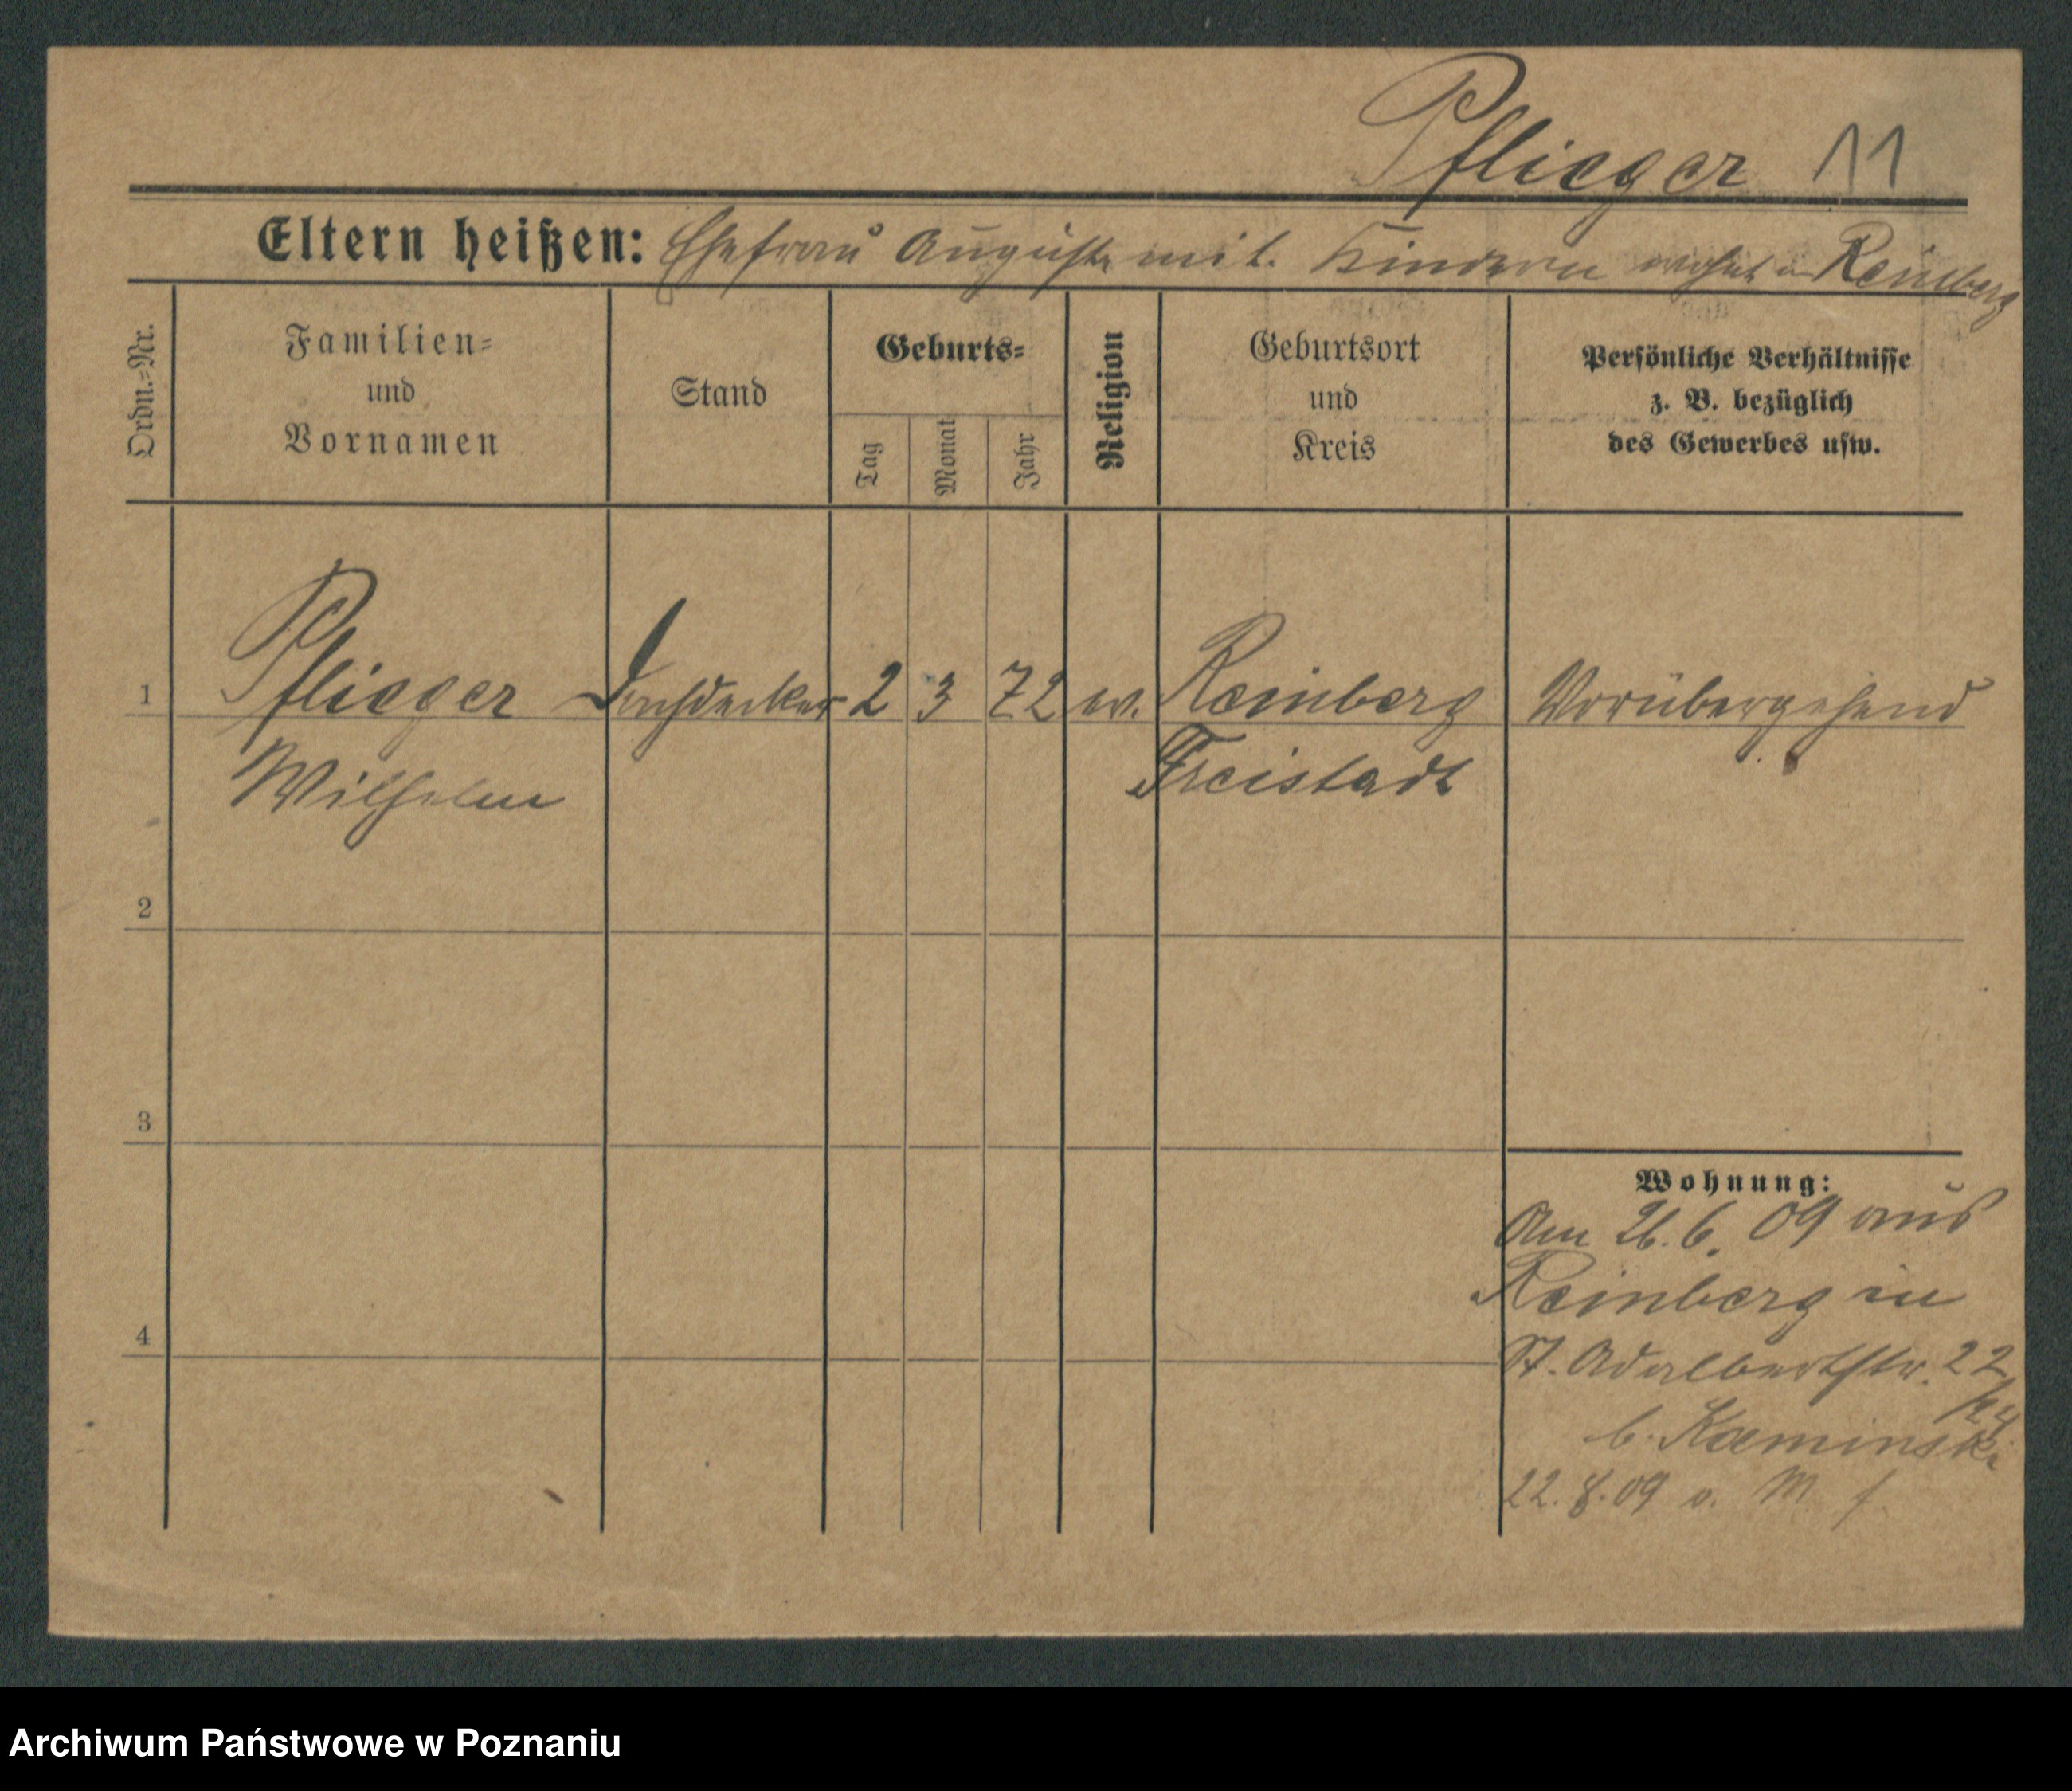 Pflieger 11
Eltern heißen: Ehefrau Auguste mit Kindern wohnt in Reinberg
Ordn.-Nr.
Familien-
und
Vornamen
Stand
Geburts-
Tag
Monat
Jahr
Religion
Geburtsort
und
Kreis
Persönliche Verhältnisse
z. B. bezüglich
des Gewerbes usw.
1 Pflieger Dachdecker 2 3 72 ev. Reinberg Vorübergehend
Wilhelm Freistadt
2
3
4
Wohnung:
Am 26.6.09 aus
Reinberg in
St. Adalbertstr. 22
b. Kaminski
22.8.09 v. M
Archiwum Państwowe w Poznaniu